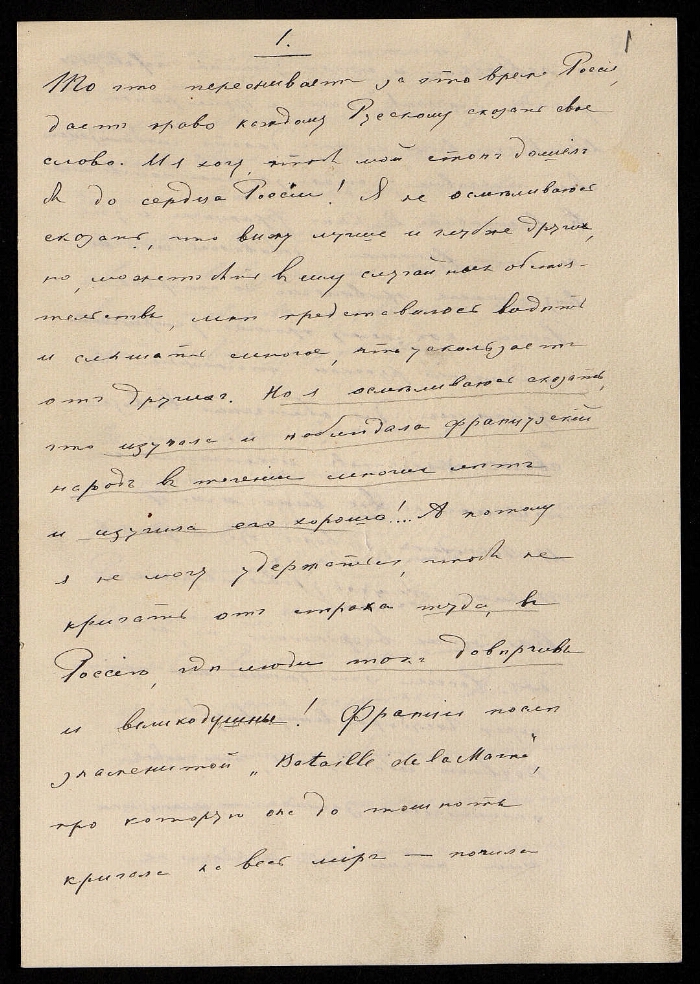 1.
1
То что переживаетъ за это время Россія,
даетъ право каждому Русскому сказать свое
слово. И я хочу, чтобъ мой стонъ дошелъ
бъ до сердца Россіи! Я не осмѣливаюсь
сказать, что вижу лучше и глубже другихъ,
но, можетъ быть въ силу случайныхъ обстоя-
тельствъ, мнѣ представилось видѣть
и слышать многое, что ускользаетъ
отъ другихъ. Но я осмѣливаюсь сказать,
что изучала и наблюдала французскій
народъ въ теченіи многихъ лѣтъ
и изучила его хорошо!... А потому
я не могу удержаться, чтобъ не
кричать отъ страха туда, въ
Россію, гдѣ люди такъ довѣрчивы
и великодушны! Франція послѣ
знаменитой „Bataille de la Marne“,
про которую она до тошноты
кричала на весь міръ — почила